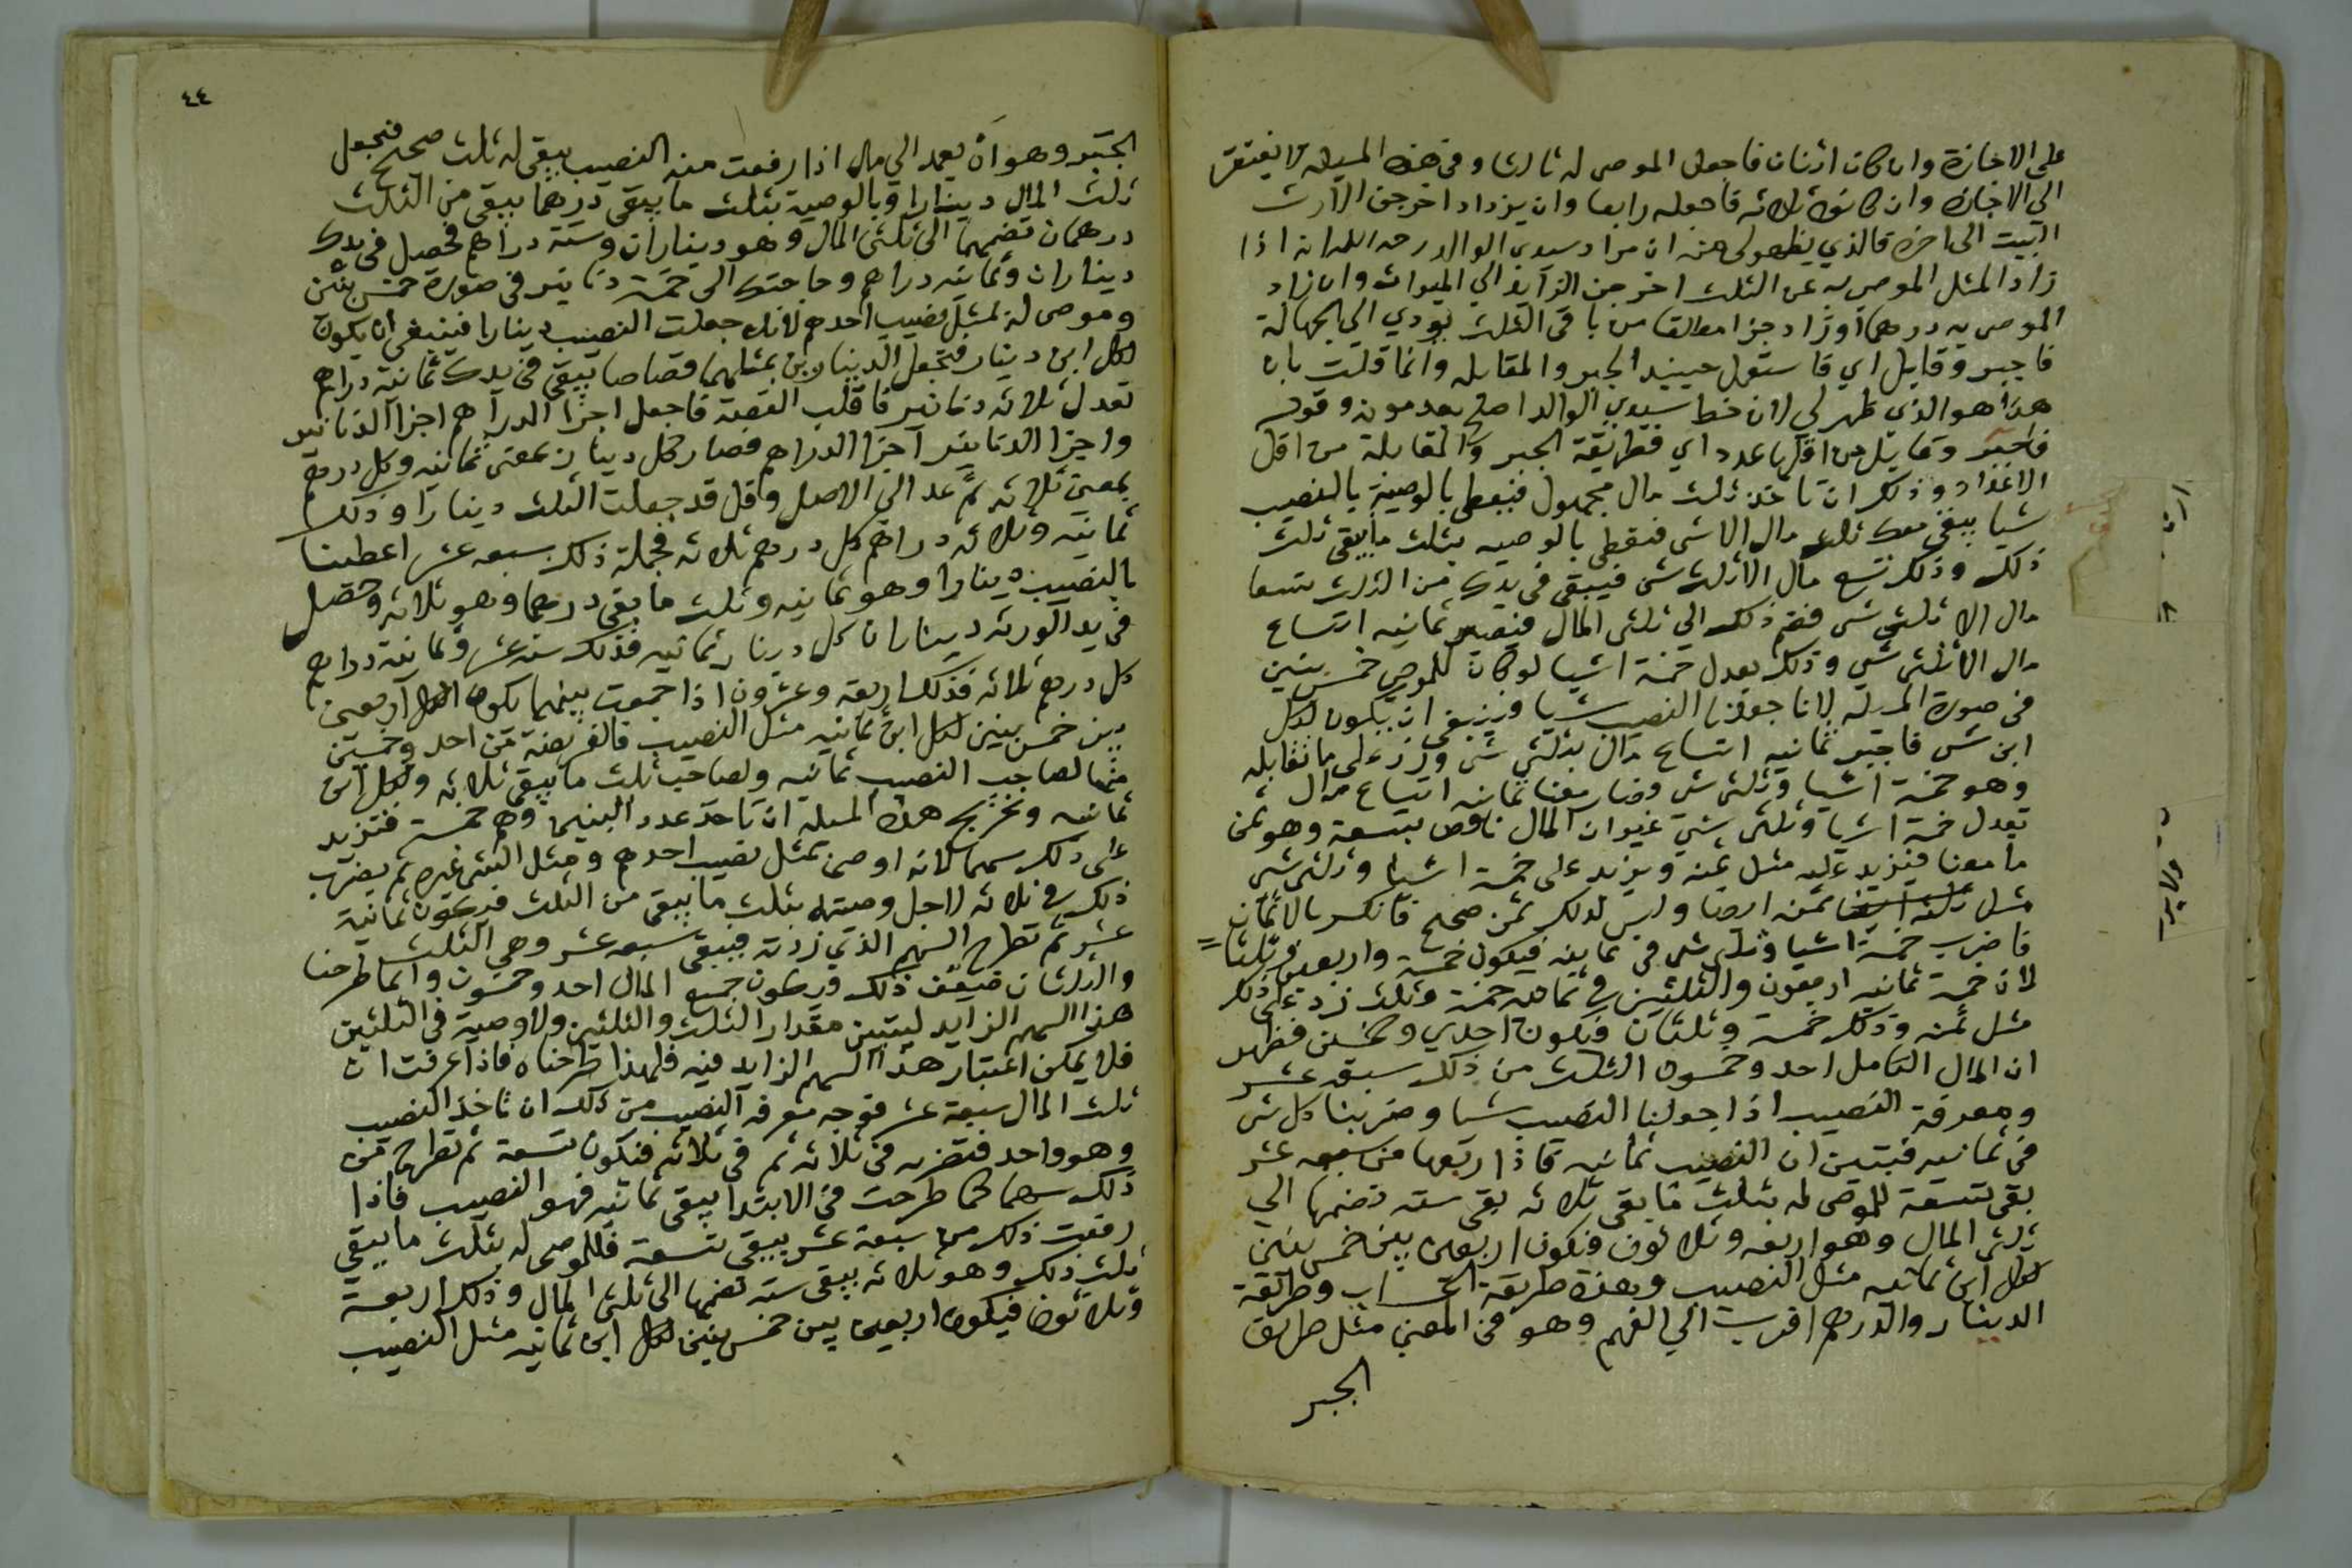 على الاجازة وان كان اثنان فاجعل الموصى له ثالثا وفي هذه المسيلة لا يفتقر
الى الاجازة وان كانوا ثلاثه فاجعله رابعا وان يزداد اخرجن الارث
البيت الى اخره فالذي يظهر لي من ان مراد سيدي الوالد رحمه الله انه اذا
زاد المثل الموصى به عن الثلث اخرجن الزايد الي الميراث وان زاد
الموصى به درهما او زاد جزا مطلقا من باقى الثلث يودي الى الجهالة
فاجبر وقابل اي فاستعمل حينيد الجبر والمقابله وانما قلت بان
هذا هو الذي ظهر لي لان خط سيدي الوالد اصلح بعد موته وقوله
فاجبر وقابل من اقل ما عدد اي فطريقة الجبر والمقابلة من اقل
الاعداد وذلك ان تاخذ ثلث مال مجهول فتعطى بالوصية بالنصيب
شيا يبقى معك ثلث مال الا شى فتعطى بالوصيه بثلث ما يبقى ثلث
ذلك وذلك تسع مال الا ثلث شى فيبقى في يدك من الثلث تسعا
مال الا ثلثى شى فضم ذلك الي ثلثى المال فيصير ثمانيه اتساع
مال الا ثلثى شى وذلك يعدل خمسة اشيا لو كان للموصى خمس بنين
في صورة المسيلة لانا جعلنا النصيب شيا فينبغى ان يكون لكل
ابن شى فاجبر ثمانيه اتساع مال بثلثى شى وزد على ما تقابله
وهو خمسة اشيا وثلثى شى فصار معنا ثمانيه اتساع مال
تعدل خمسة اشيا وثلثى شى غير ان المال ناقص بتسعة وهو ثمن
ما معنا فنزيد عليه مثل ثمنه ويزيد على خمسة اشيا وثلثى شى
مثل ثمنه ايضا وليس لذلك ثمن صحيح فانكسر بالاثمان
فاضرب خمسة اشيا وثلثى شى في ثمانيه فيكون خمسة واربعين وثلثا
لان خمسة في ثمانيه اربعون والثلثين في ثمانيه خمسة وثلث زد على ذلك
مثل ثمنه وذلك خمسة وثلثان فتكون احدي وخمسين فظهر
ان المال الكامل احد وخمسون الثلث من ذلك سبعه عشر
ومعرفة النصيب اذا جعلنا النصيب شيا وضربنا كل شى
في ثمانيه فيتبين ان النصيب ثمانيه فاذا رفعتها من سبعه عشر
بقى تسعة للموصى له بثلث ما بقى ثلاثه بقى سته تضمها الي
ثلثى المال وهو اربعه وثلاثون فتكون اربعين بين خمس بنين
لكل ابن ثمانيه مثل النصيب وهذه طريقة الحساب وطريقة
الدينار والدرهم اقرب الي الفهم وهو في المعنى مثل طريق
الجبر
٤٤
الجبر وهو ان يعمد الى مال اذا رفعت منه النصيب يبقى له ثلث صحيح فتجعل
ثلث المال دينارا وبالوصية بثلث ما يبقى درهما يبقى من الثلث
درهمان تضمهما الى ثلثى المال وهو ديناران وستة دراهم فحصل في يدك
ديناران وثمانيه دراهم وحاجتك الى خمسة دنانير في صورة خمس بنين
وموصى له بمثل نصيب احدهم لانك جعلت النصيب دينارا فينبغى ان يكون
لكل ابن دينار فتجعل الدينارين بمثلهما قصاصا يبقى في يدك ثمانية دراهم
تعدل ثلاثه دنانير فاقلب القصة فاجعل اجزا الدراهم اجزا الدنانير
واجزا الدنانير اجزا الدراهم فصار كل دينار بمعنى ثمانيه وكل درهم
بمعنى ثلاثه ثم عد الى الاصل وقل قد جعلت الثلث دينارا وذلك
ثمانيه وثلاثه دراهم كل درهم ثلاثه فجملة ذلك سبعه عشر اعطينا
بالنصيب دينارا وهو ثمانيه وثلث ما بقى درهما وهو ثلاثه وحصل
في يد الورثه ديناران كل دينار ثمانيه فذلك سته عشر وثمانية دراهم
كل درهم ثلاثه فذلك اربعة وعشرون اذا جمعت بينهما يكون الكل اربعين
بين خمس بنين لكل ابن ثمانيه مثل النصيب فالفريضة من احد وخمسين
منها لصاحب النصيب ثمانيه ولصاحب ثلث ما يبقى ثلاثه ولكل ابن
ثمانيه وتخريج هذه المسيلة ان تاخذ عدد البنين وهم خمسة فتزيد
على ذلك سهما لانه اوصى بمثل نصيب احدهم ومثل الشى غيره ثم يضرب
ذلك في ثلاثه لاجل وصيته بثلث ما يبقى من الثلث فيكون ثمانية
عشر ثم تطرح السهم الذي زدته فيبقى سبعه عشر وهي الثلث
والثلثان ضعف ذلك فيكون جميع المال احد وخمسون وانما طرحنا
هذا السهم الزايد ليتبين مقدار الثلث والثلثين ولا وصية في الثلثين
فلا يمكن اعتبار هذا السهم الزايد فيه فلهذا طرحناه فاذا عرفت ان
ثلث المال سبعة عشر فوجه معرفة النصيب من ذلك ان تاخذ النصيب
وهو واحد فتضربه في ثلاثه ثم في ثلاثه فتكون تسعة ثم تطرح من
ذلك سهما كما طرحت في الابتدا يبقى ثمانيه فهو النصيب فاذا
رفعت ذلك من سبعة عشر يبقى تسعة فللموصى له بثلث ما يبقى
ثلث ذلك وهو ثلاثه يبقى سته تضمها الى ثلثى المال وذلك اربعة
وثلاثون فيكون اربعين بين خمس بنين لكل ابن ثمانيه مثل النصيب